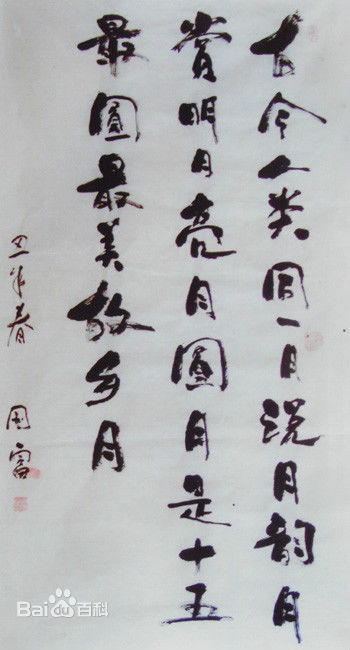 古今人类同一月说月韵月
赏明月亮月圆月是十五
最圆最美故乡月
丑年春 国富
Baidu百科